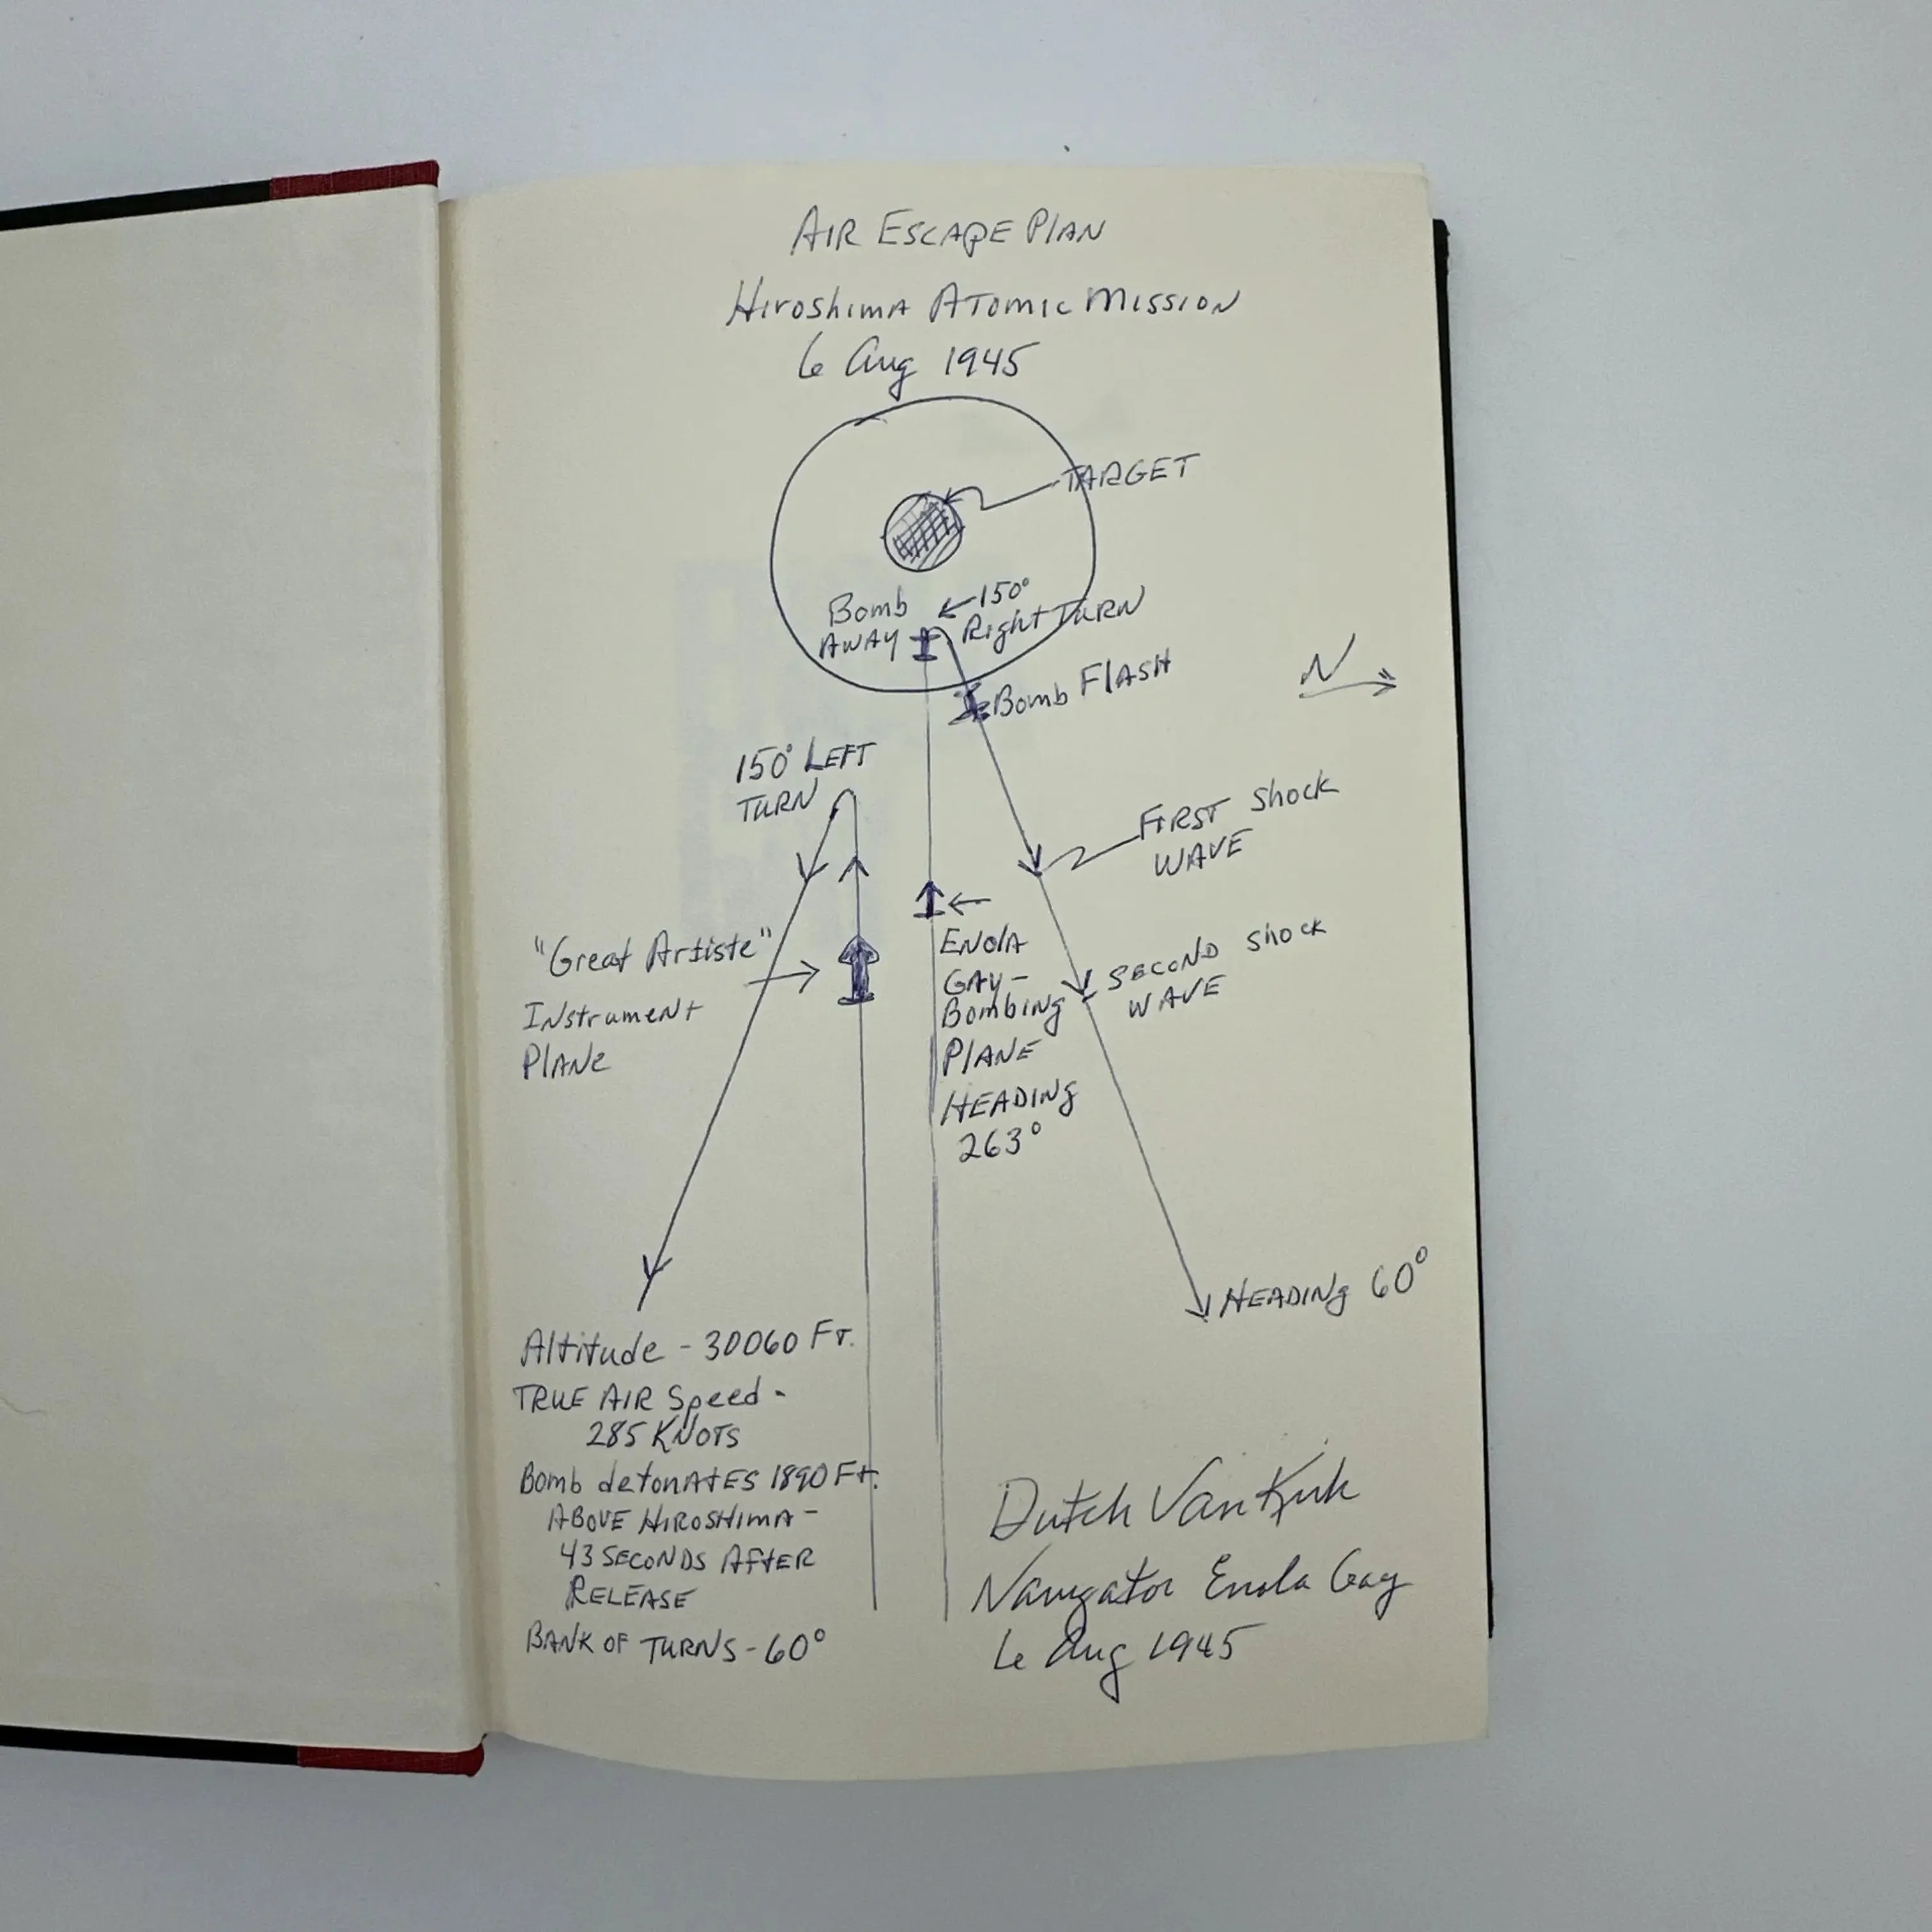 AIR ESCAPE PLAN
HIROSHIMA ATOMIC MISSION
6 Aug 1945
TARGET
Bomb
AWAY
150°
Right TURN
Bomb FLASH
N
150° LEFT
TURN
FIRST Shock
WAVE
"Great Artiste"
INstrumeNt
PLANE
ENOLA
GAY-
Bombing
PLANE
HEADINg
263°
SECOND Shock
WAVE
HEADINg 60°
Altitude - 30060 FT.
TRUE AIR Speed -
285 KNOTS
Bomb detonAtES 1890 Ft.
ABOVE HIROSHIMA -
43 SECONDS AFtER
RELEASE
BANK OF TURNS - 60°
Dutch VanKirk
Navigator Enola Gay
6 Aug 1945